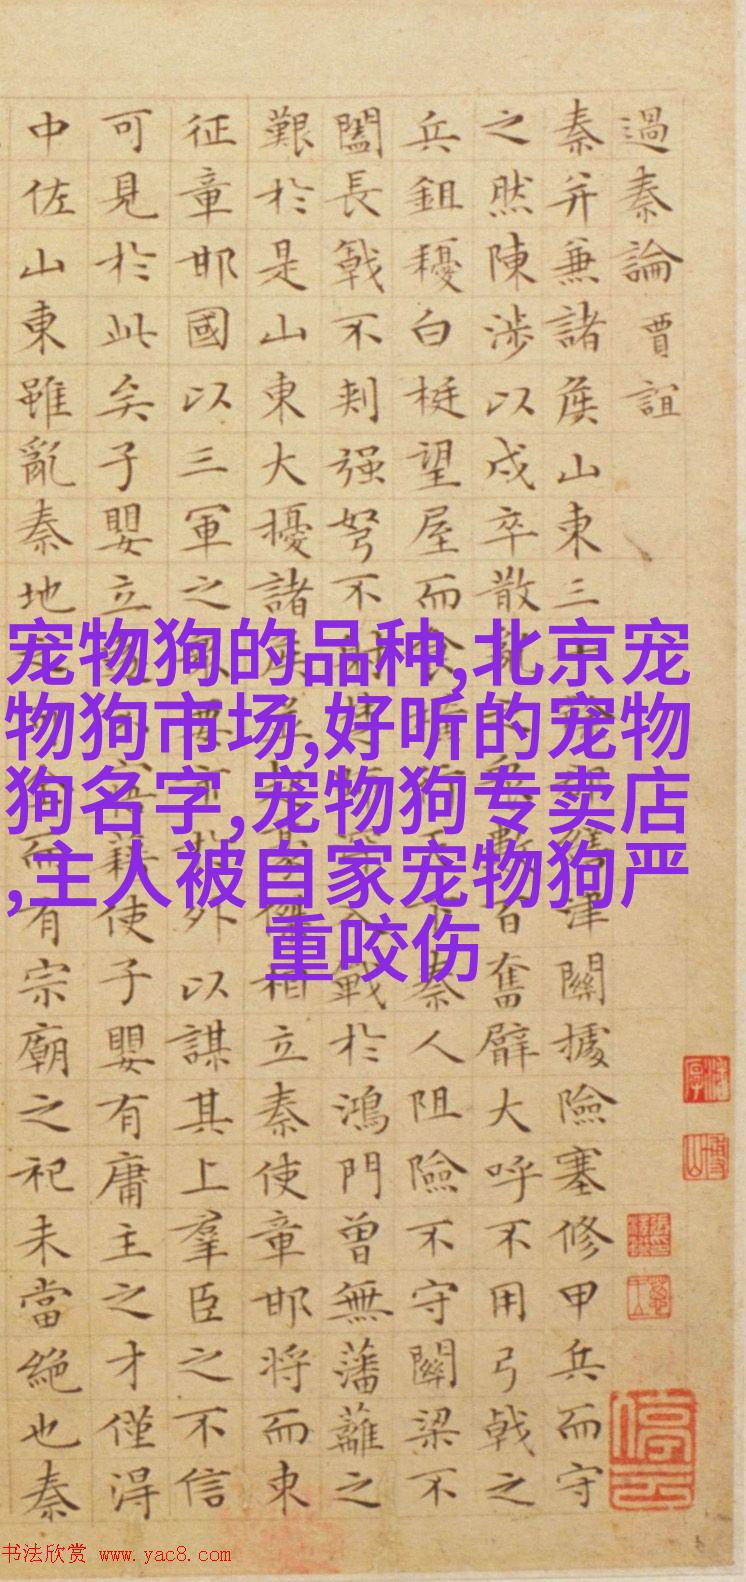 過秦論 賈誼
秦并兼諸侯山東三津關據險塞修甲兵而守
之然陳涉以戍卒散百奮臂大呼不用弓戟之
兵鉏耰白梃望屋而秦人阻險不守關梁不
闔長戟不刺强弩不戰於鴻門曾無藩籬之
艱於是山東大擾諸相立秦使章邯將而東
征章邯國以三軍之外以謀其上羣臣之不信
可見於此矣子嬰立使子嬰有庸主之才僅得
中佐山東雖亂秦地而有宗廟之祀未當絶也秦
宠物狗的品种,北京宠
物狗市场,好听的宠物
狗名字,宠物狗专卖店
,主人被自家宠物狗严
重咬伤
书法欣赏 www.yac8.com